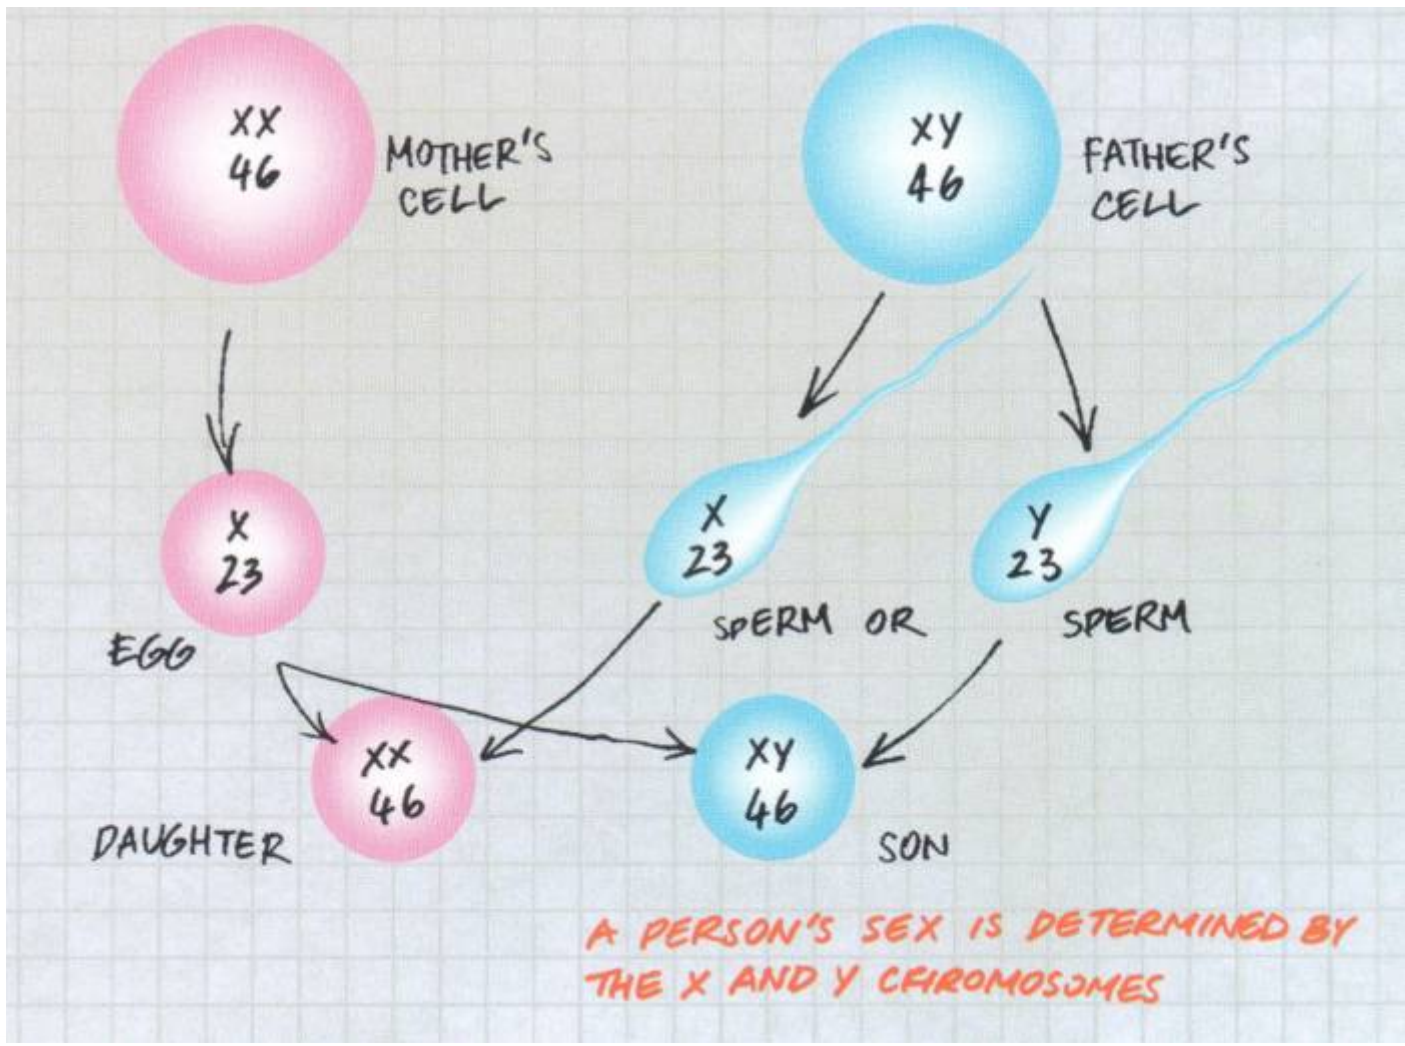 XX
46
MOTHER'S
CELL
XY
46
FATHER'S
CELL
X
23
EGG
X
23
SPERM OR
Y
23
SPERM
XX
46
DAUGHTER
XY
46
SON
A PERSON'S SEX IS DETERMINED BY
THE X AND Y CHROMOSOMES